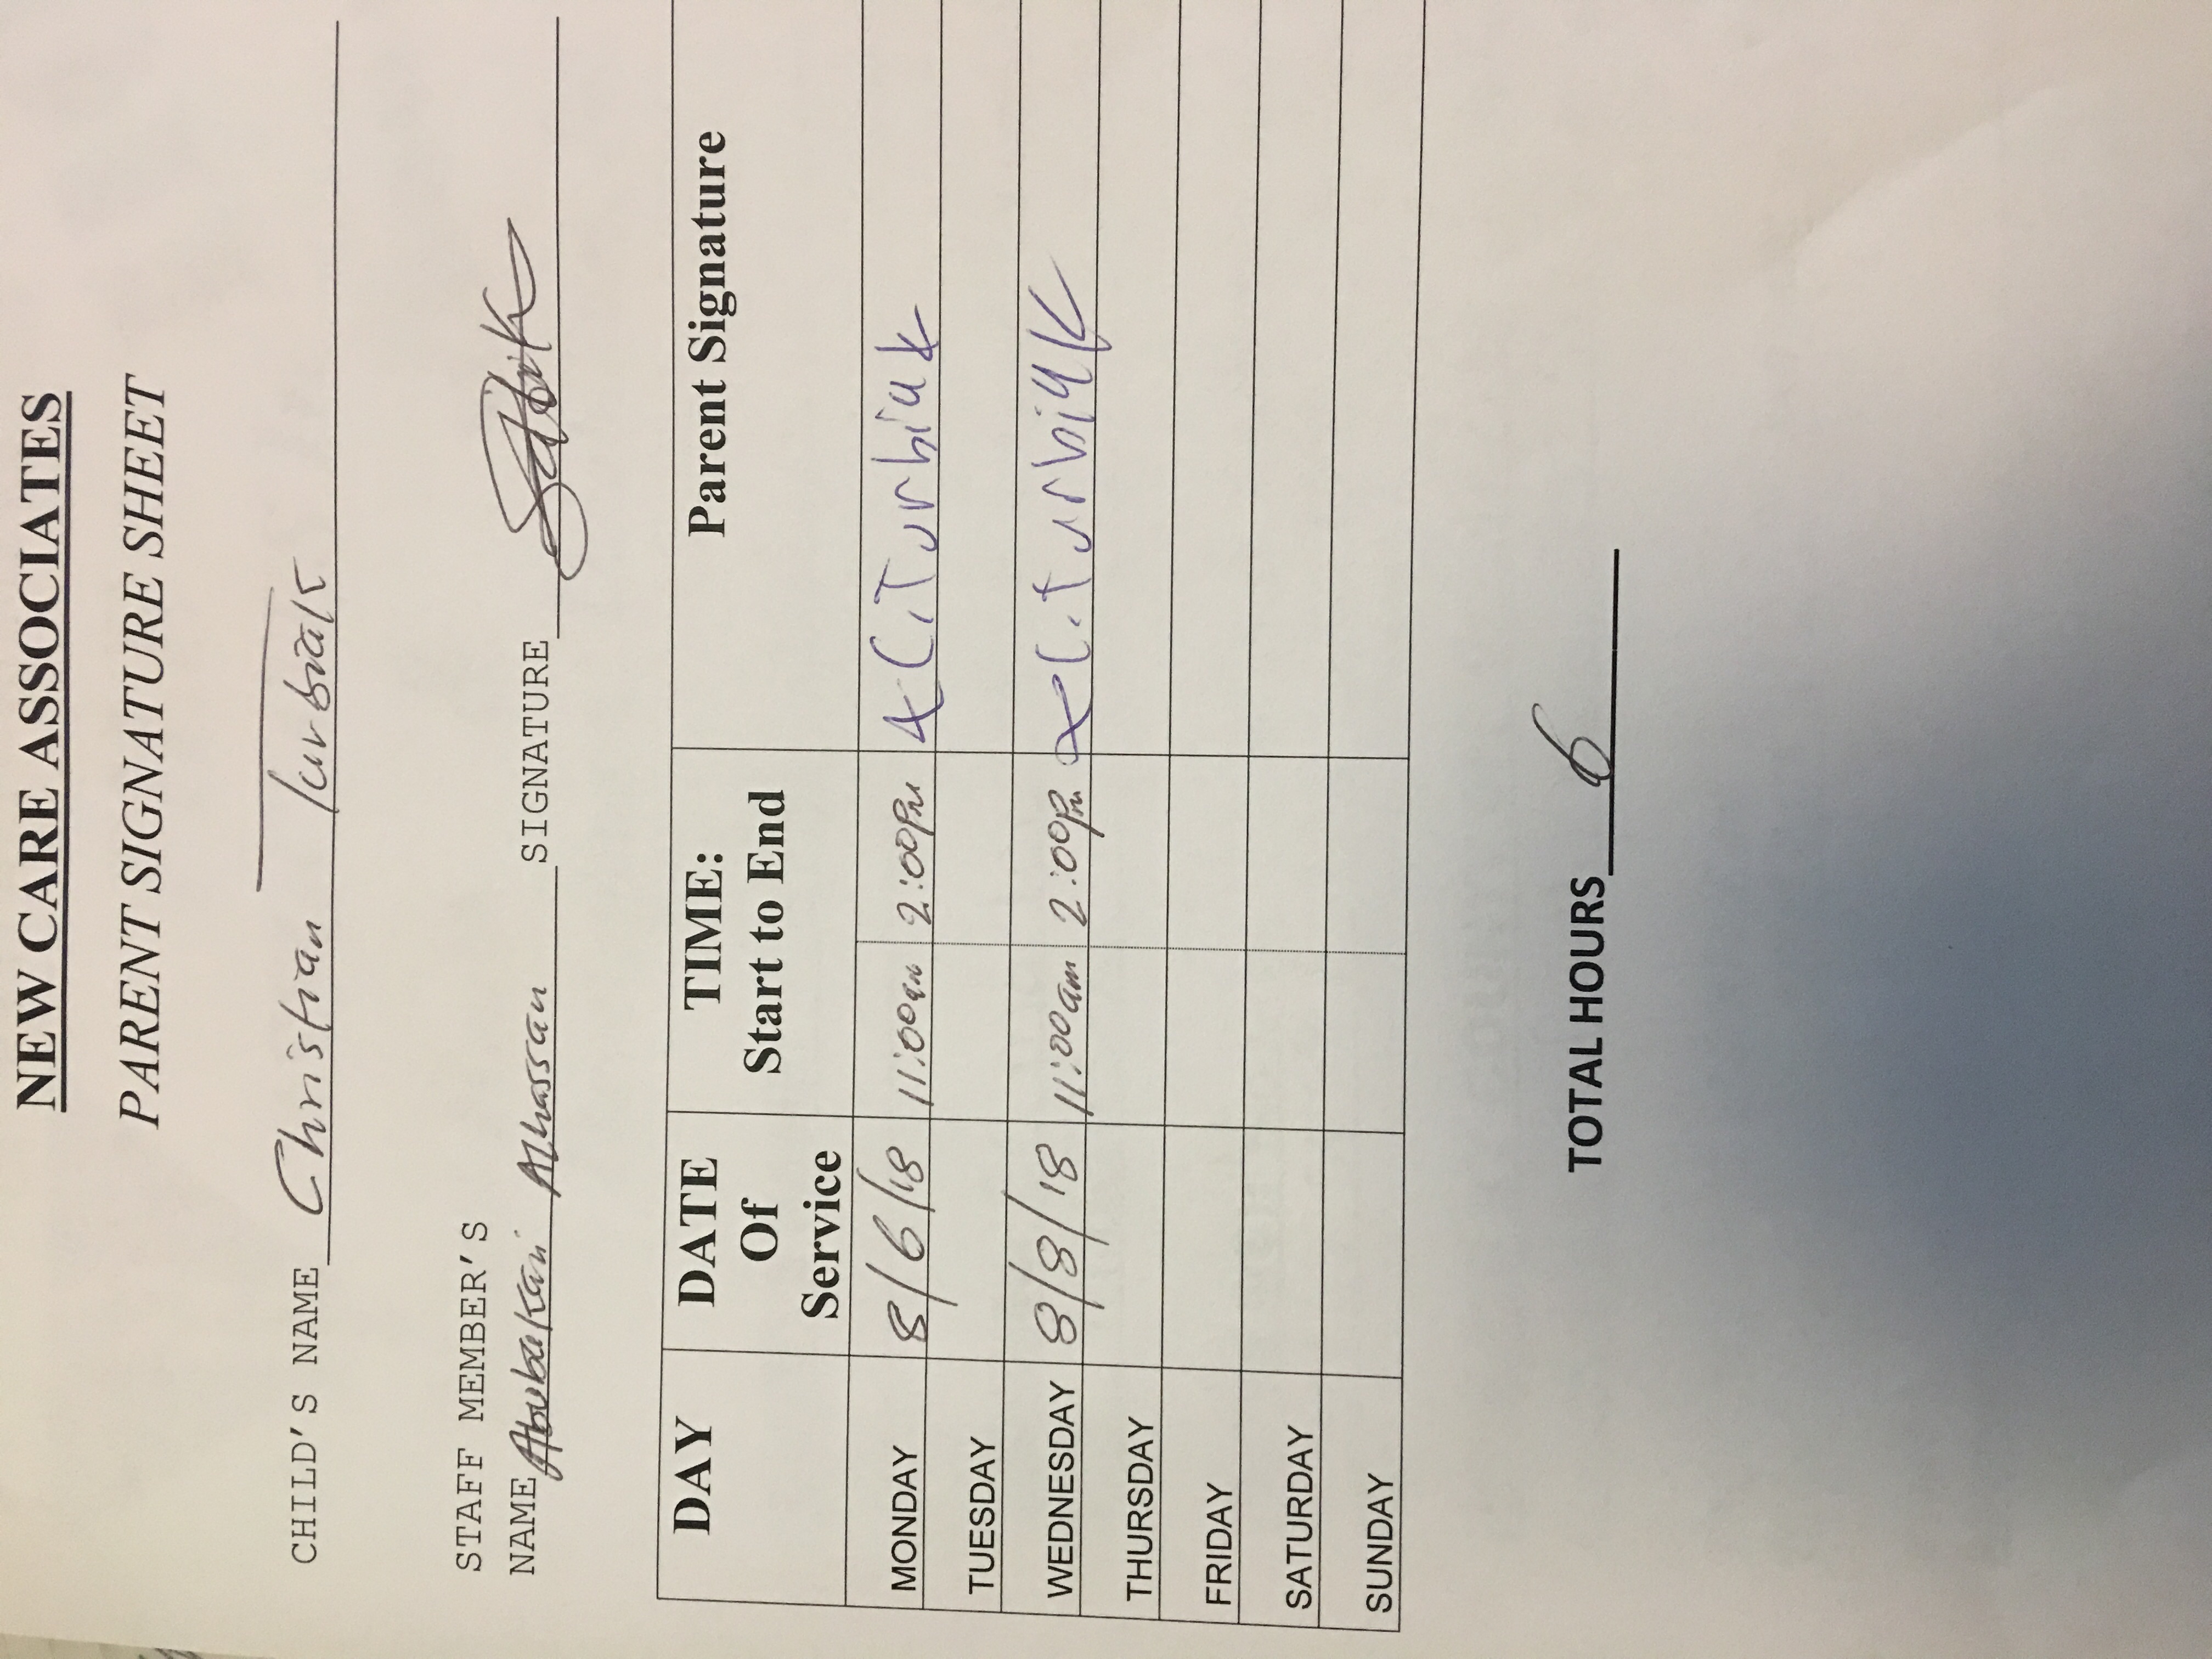 NEW CARE ASSOCIATES
PARENT SIGNATURE SHEET
CHILD'S NAME Christian Turbiak
STAFF MEMBER'S
NAME Abubakari Alhassan SIGNATURE
DAY DATE Of Service TIME: Start to End Parent Signature
MONDAY 8/6/18 11:00am 2:00PM C.Turbiak
TUESDAY
WEDNESDAY 8/8/18 11:00am 2:00Pm C.Turbiak
THURSDAY
FRIDAY
SATURDAY
SUNDAY
TOTAL HOURS 6